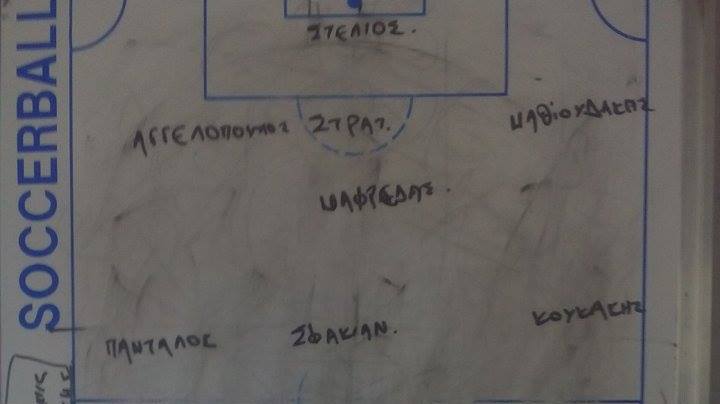 SOCCERBALL
ΣΤΕΛΙΟΣ.
ΑΓΓΕΛΟΠΟΥΛΟΣ ΣΤΡΑΤ. ΜΑΘΙΟΥΔΑΚΗΣ
ΜΑΦΡΕΔΑΣ.
ΠΑΝΤΑΛΟΣ ΣΦΑΚΙΑΝ. ΚΟΥΚΑΚΗΣ